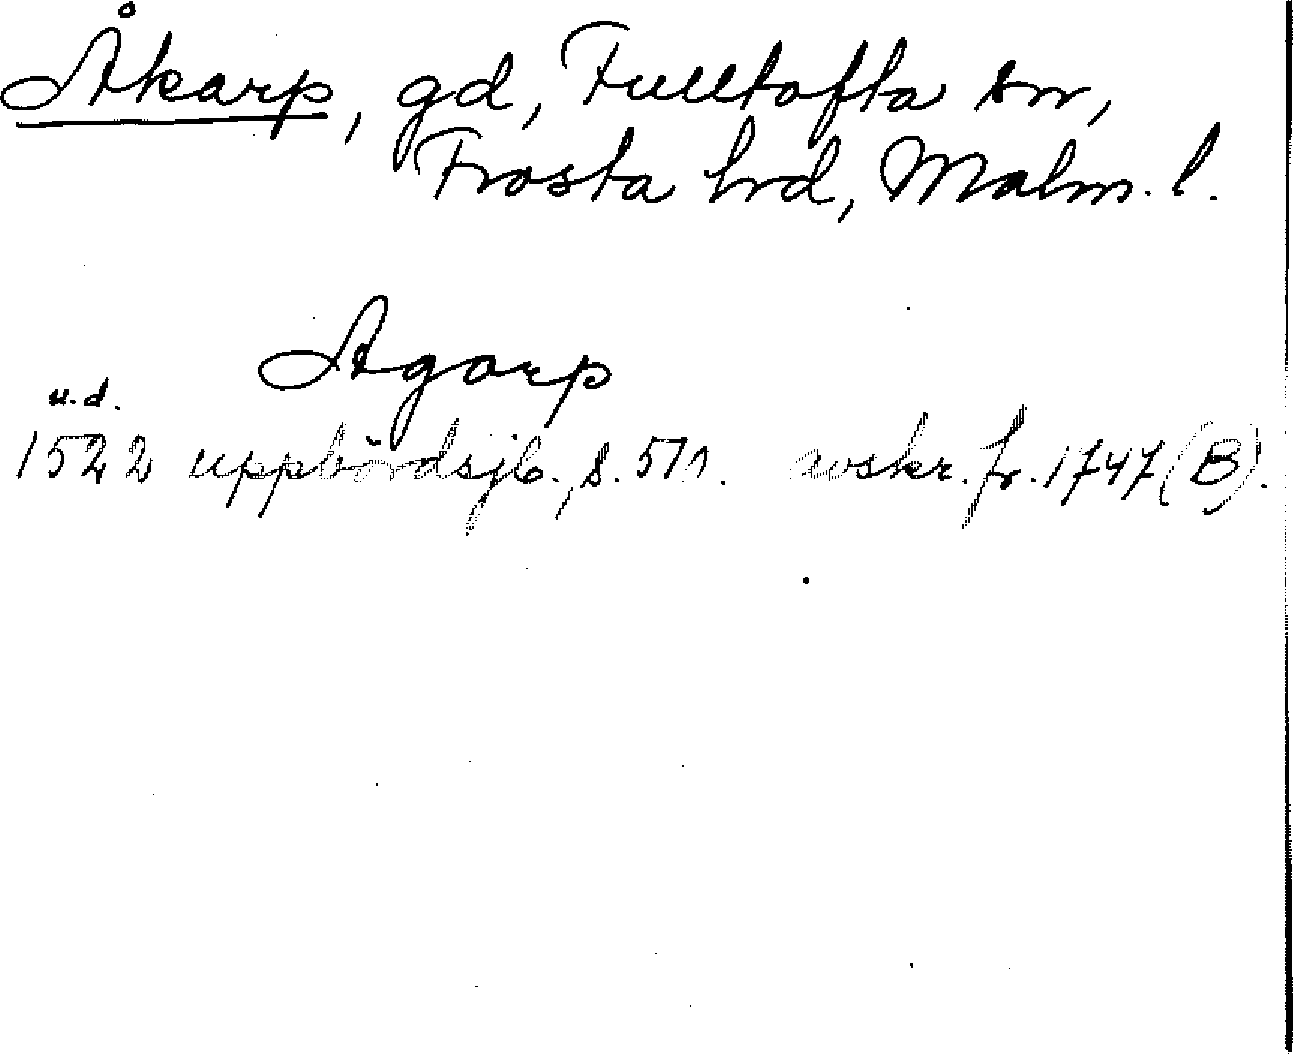 Åkarp, gd, Fulltofta sn,
Frosta hrd, Malm. l.
Agarp
u. d.
1522 uppbördsjb., s. 571. avskr. fr. 1747 (B).